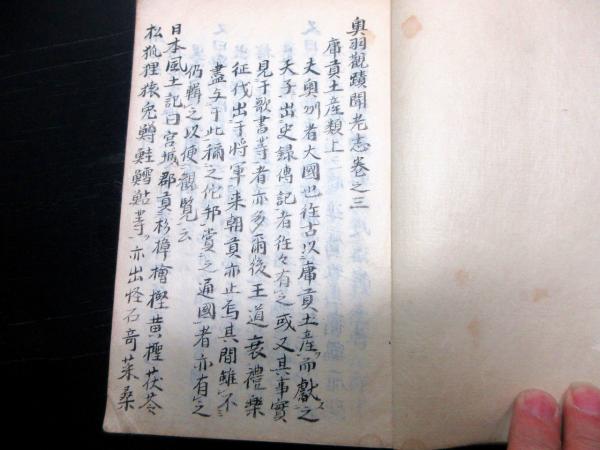 奥羽觀蹟聞老志卷之三
庸貢土産類上
夫奥州者大國也往古以庸貢土産而獻之
天子出史録傳記者往々有之或又其事實
見于歌書等者亦多爾後王道衰禮樂
征伐出于將軍来朝貢亦止焉其間雖不
盡与于此稱之佗邦賞之通國者亦有之
仍輯之以便觀覧云
日本風土記曰宮城郡貢杉樟檜樫黄檀茯苓
松狐狸猿兎鱒鮭鱈鮎等亦出怪石竒菜桑